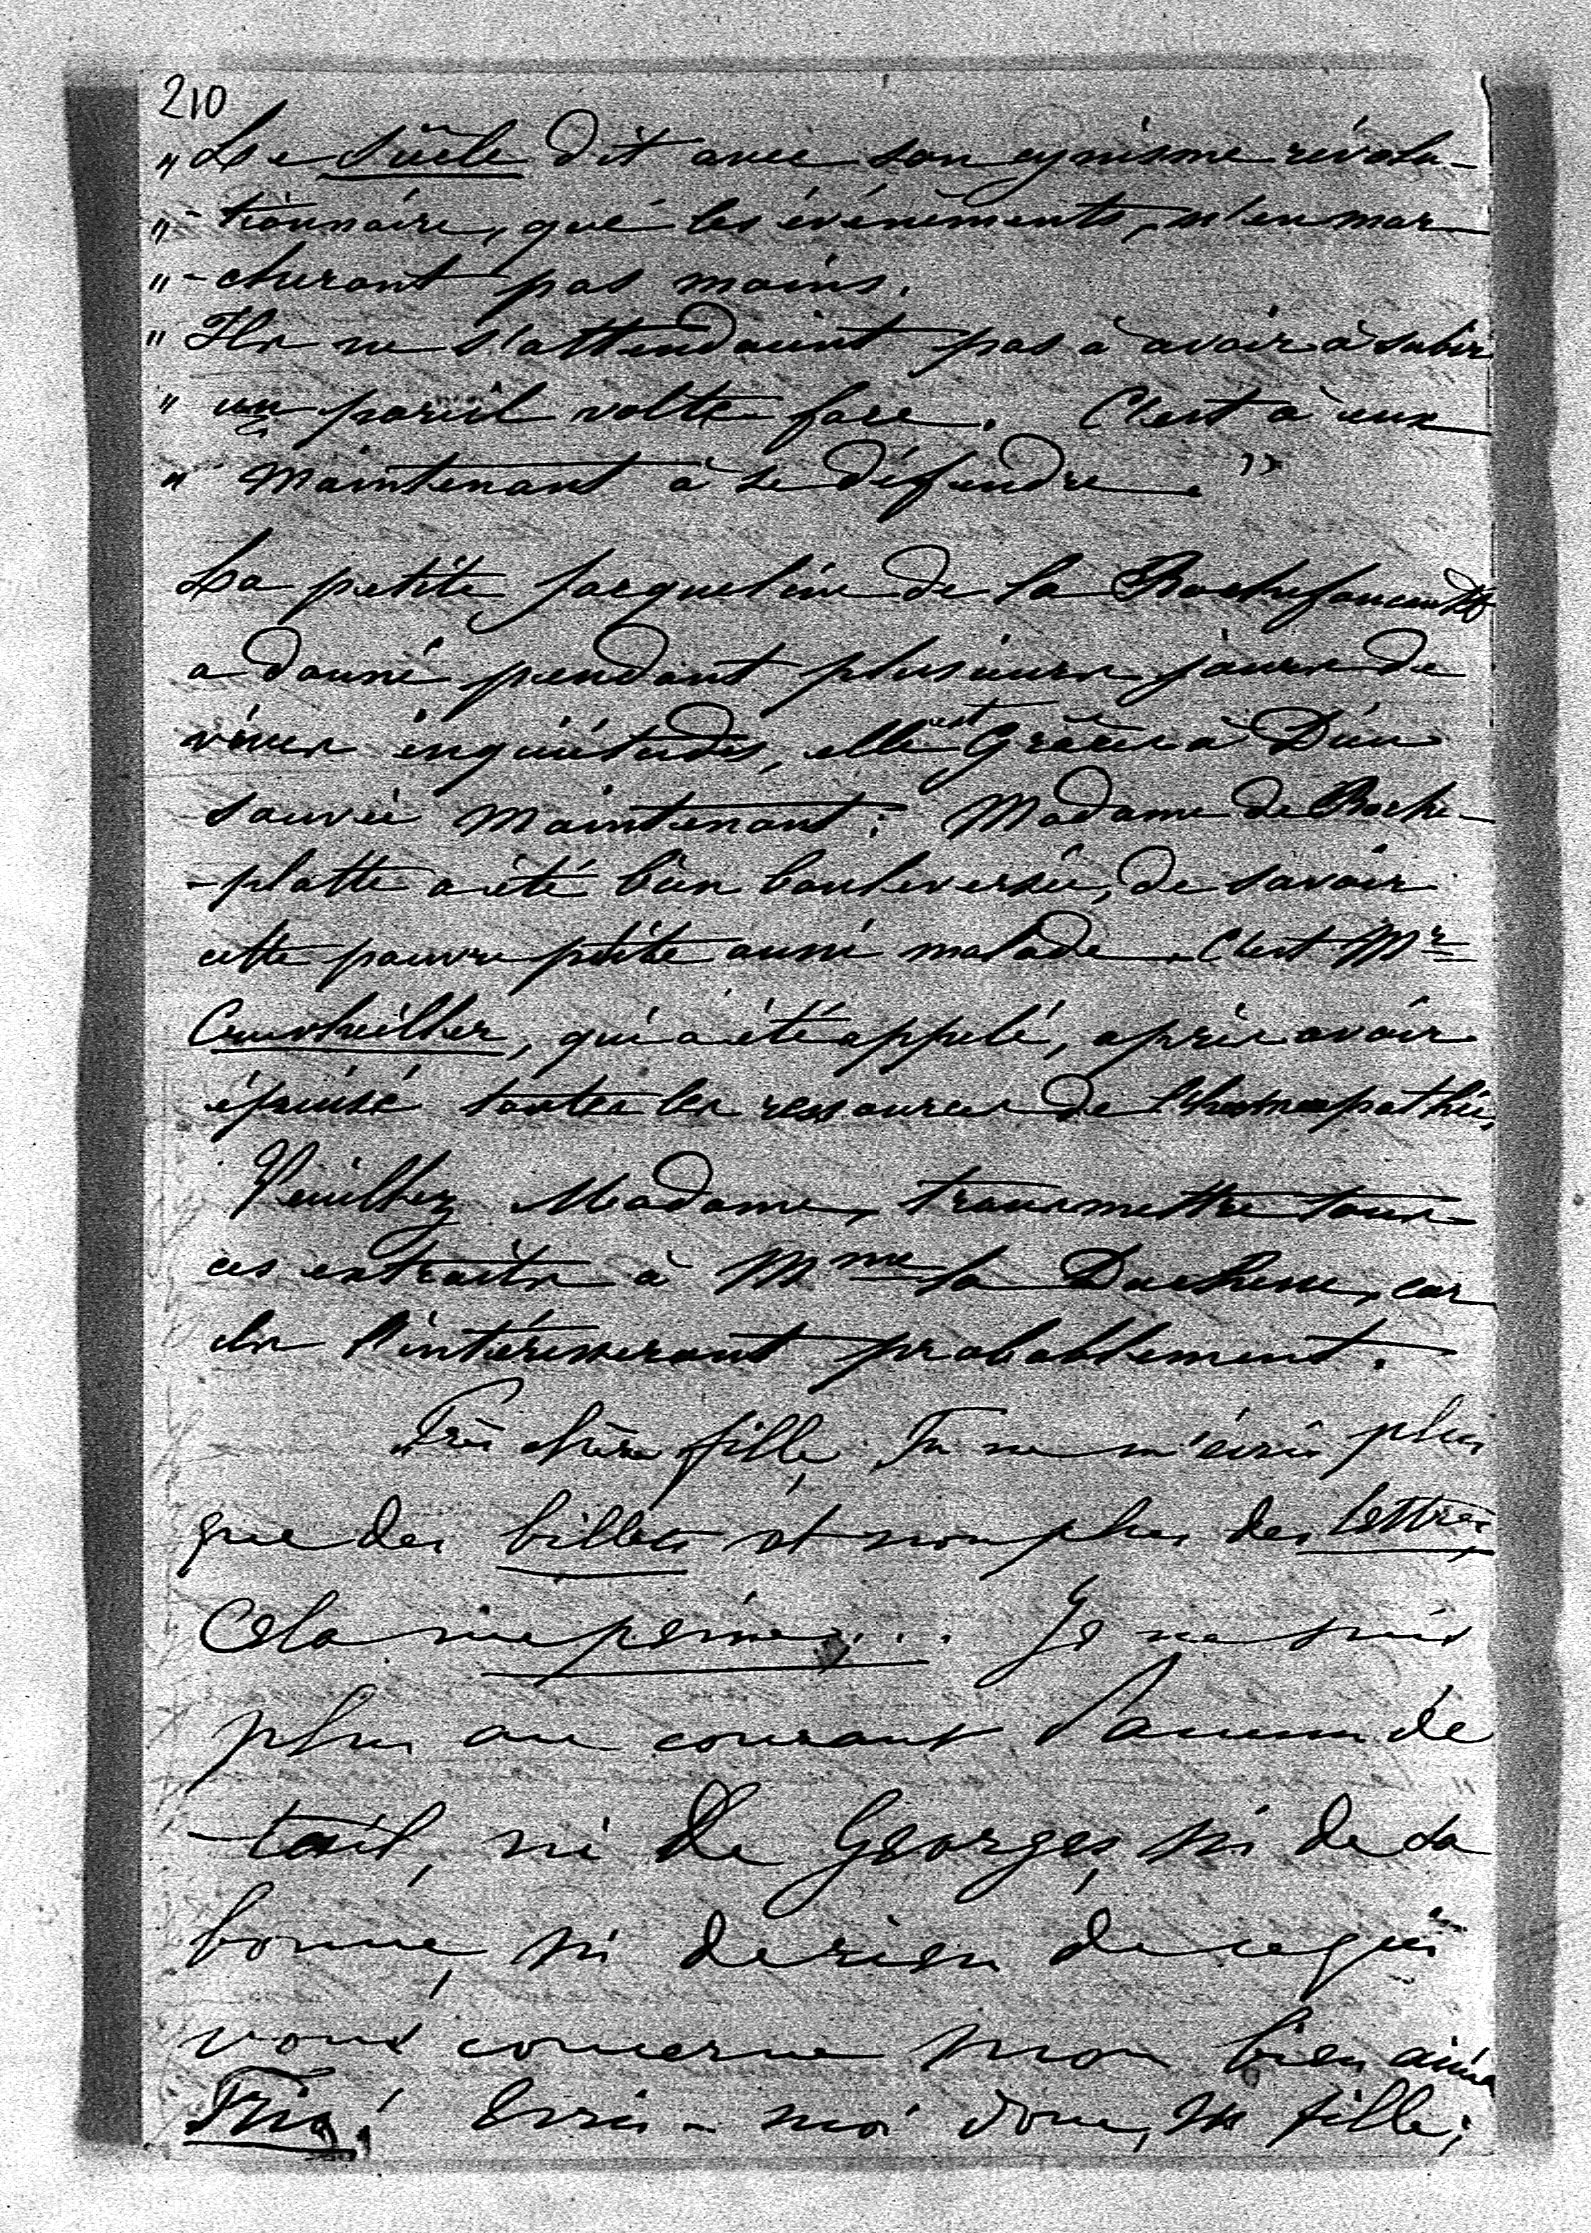 210
" Le Siècle dit avec son cynisme révolu-
" -tionnaire, que les événements, n'en mar
" -cheront pas moins.
" Ils ne s'attendaient pas à avoir à subir
" un pareil volte face. C'est à eux
" maintenant à se défendre. "
La petite Jacqueline de la Rochefoucauld
a donné pendant plusieurs jours de
vives inquiétudes, elle est Grâces à Dieu
sauvée maintenant : Madame de Roche-
-platte a été bien bouleversée, de savoir
cette pauvre petite aussi malade. C'est Mr
Cruvheillier, qui a été appelé, après avoir
épuisé toutes les ressources de l'homeopathie,
Veuillez Madame, transmettre tous
ces extraits à Mme la Duchesse, car
ils l'intéresseront probablement.
Très chère fille, Tu ne m'écris plus
que des billets et non plus des lettres
Cela me peine... Je ne suis
plus au courant d'aucun dé
-tail, ni de Georges, ni de sa
bonne, ni de rien de ce qui
vous concerne mon bien aimé
Trio ! Ecris-moi donc, ma fille ;